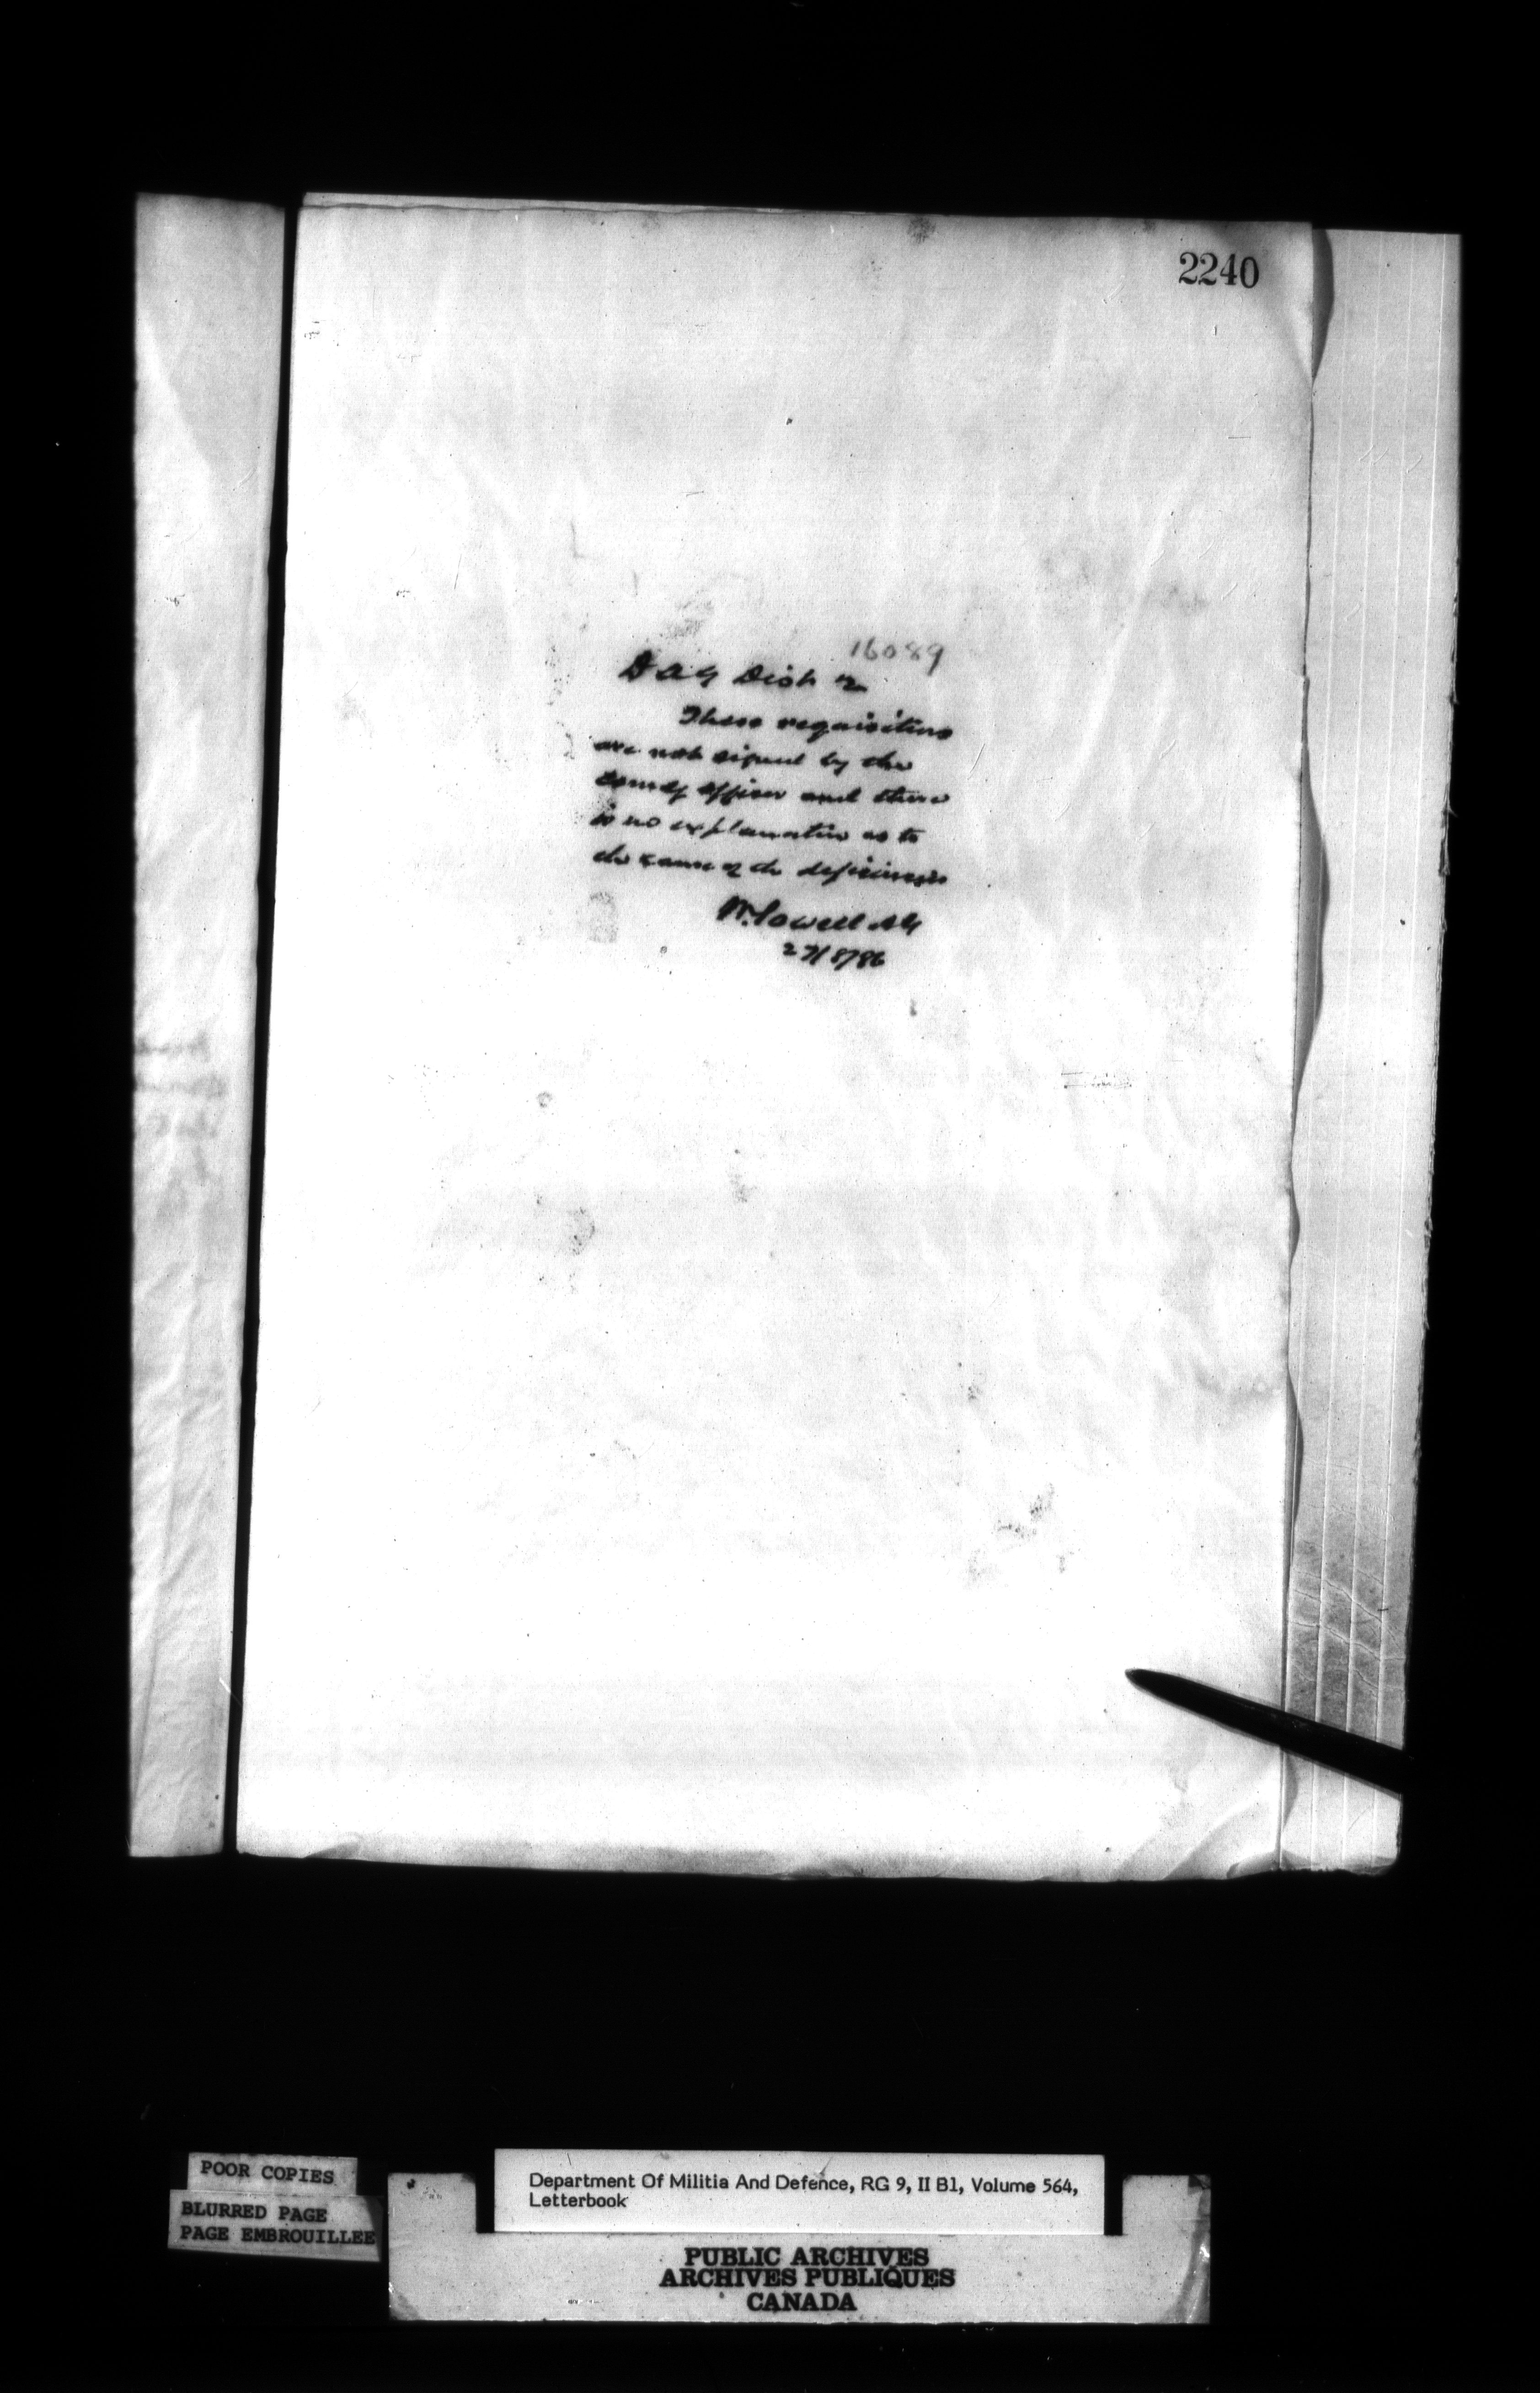 2240
16089
DAG Dist 2
These requisitions
are not signed by the
Comdg Officer and there
is no explanation as to
the cause of the deficiencies
W. Powell AG
27/8/86
POOR COPIES
BLURRED PAGE
PAGE EMBROUILLEE
Department Of Militia And Defence, RG 9, II B1, Volume 564,
Letterbook
PUBLIC ARCHIVES
ARCHIVES PUBLIQUES
CANADA